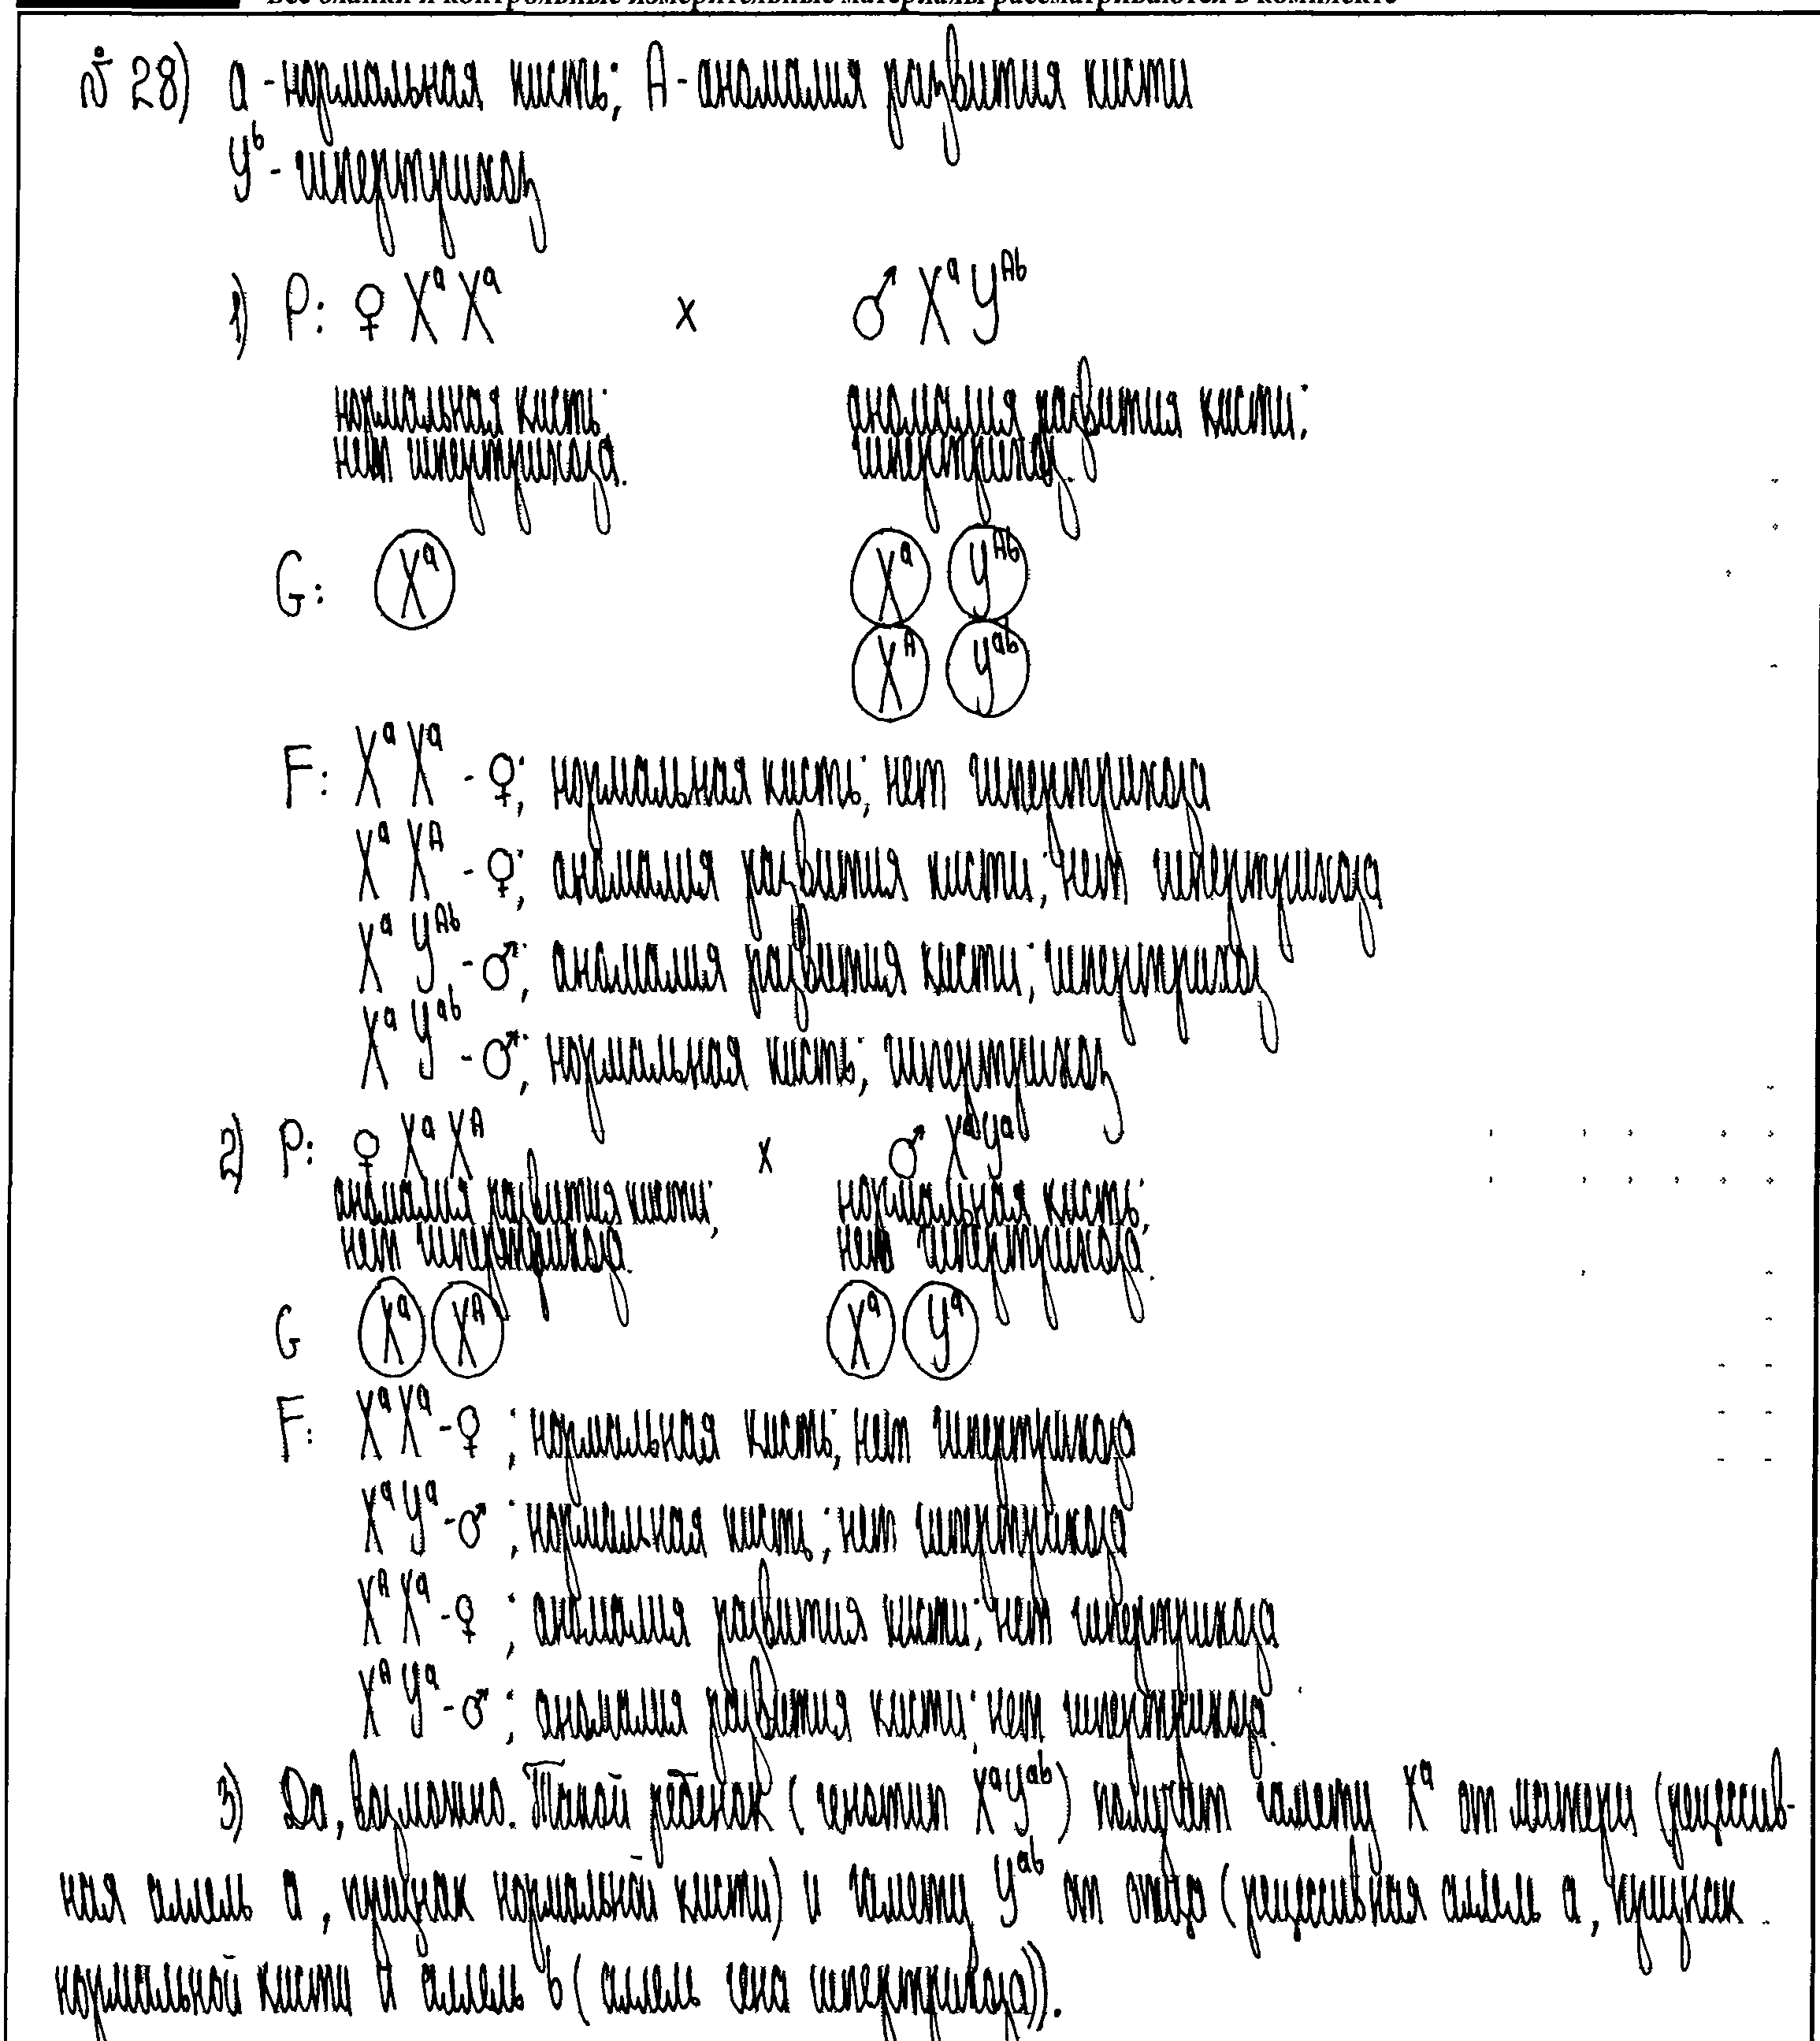 Все бланки и контрольные измерительные материалы рассматриваются в комплекте
№ 28) a - нормальная кисть; A - аномалия развития кисти
Y^b - гипертрихоз
1) P: ♀ X^a X^a x ♂ X^a Y^Ab
нормальная кисть; аномалия развития кисти;
нет гипертрихоза. гипертрихоз.
G: X^a X^a Y^Ab
X^A Y^ab
F: X^a X^a - ♀; нормальная кисть; нет гипертрихоза
X^a X^A - ♀; аномалия развития кисти; нет гипертрихоза
X^a Y^Ab - ♂; аномалия развития кисти; гипертрихоз
X^a Y^ab - ♂; нормальная кисть; гипертрихоз
2) P: ♀ X^a X^A x ♂ X^a Y^a
аномалия развития кисти; нормальная кисть;
нет гипертрихоза. нет гипертрихоза.
G X^a X^A X^a Y^a
F: X^a X^a - ♀; нормальная кисть; нет гипертрихоза
X^a Y^a - ♂; нормальная кисть; нет гипертрихоза
X^A X^a - ♀; аномалия развития кисти; нет гипертрихоза
X^A Y^a - ♂; аномалия развития кисти; нет гипертрихоза.
3) Да, возможно. Такой ребёнок (генотип X^a Y^ab) получает гамету X^a от матери (рецессив-
ная аллель a, признак нормальной кисти) и гамету Y^ab от отца (рецессивная аллель a, признак
нормальной кисти и аллель b (аллель гена гипертрихоза)).